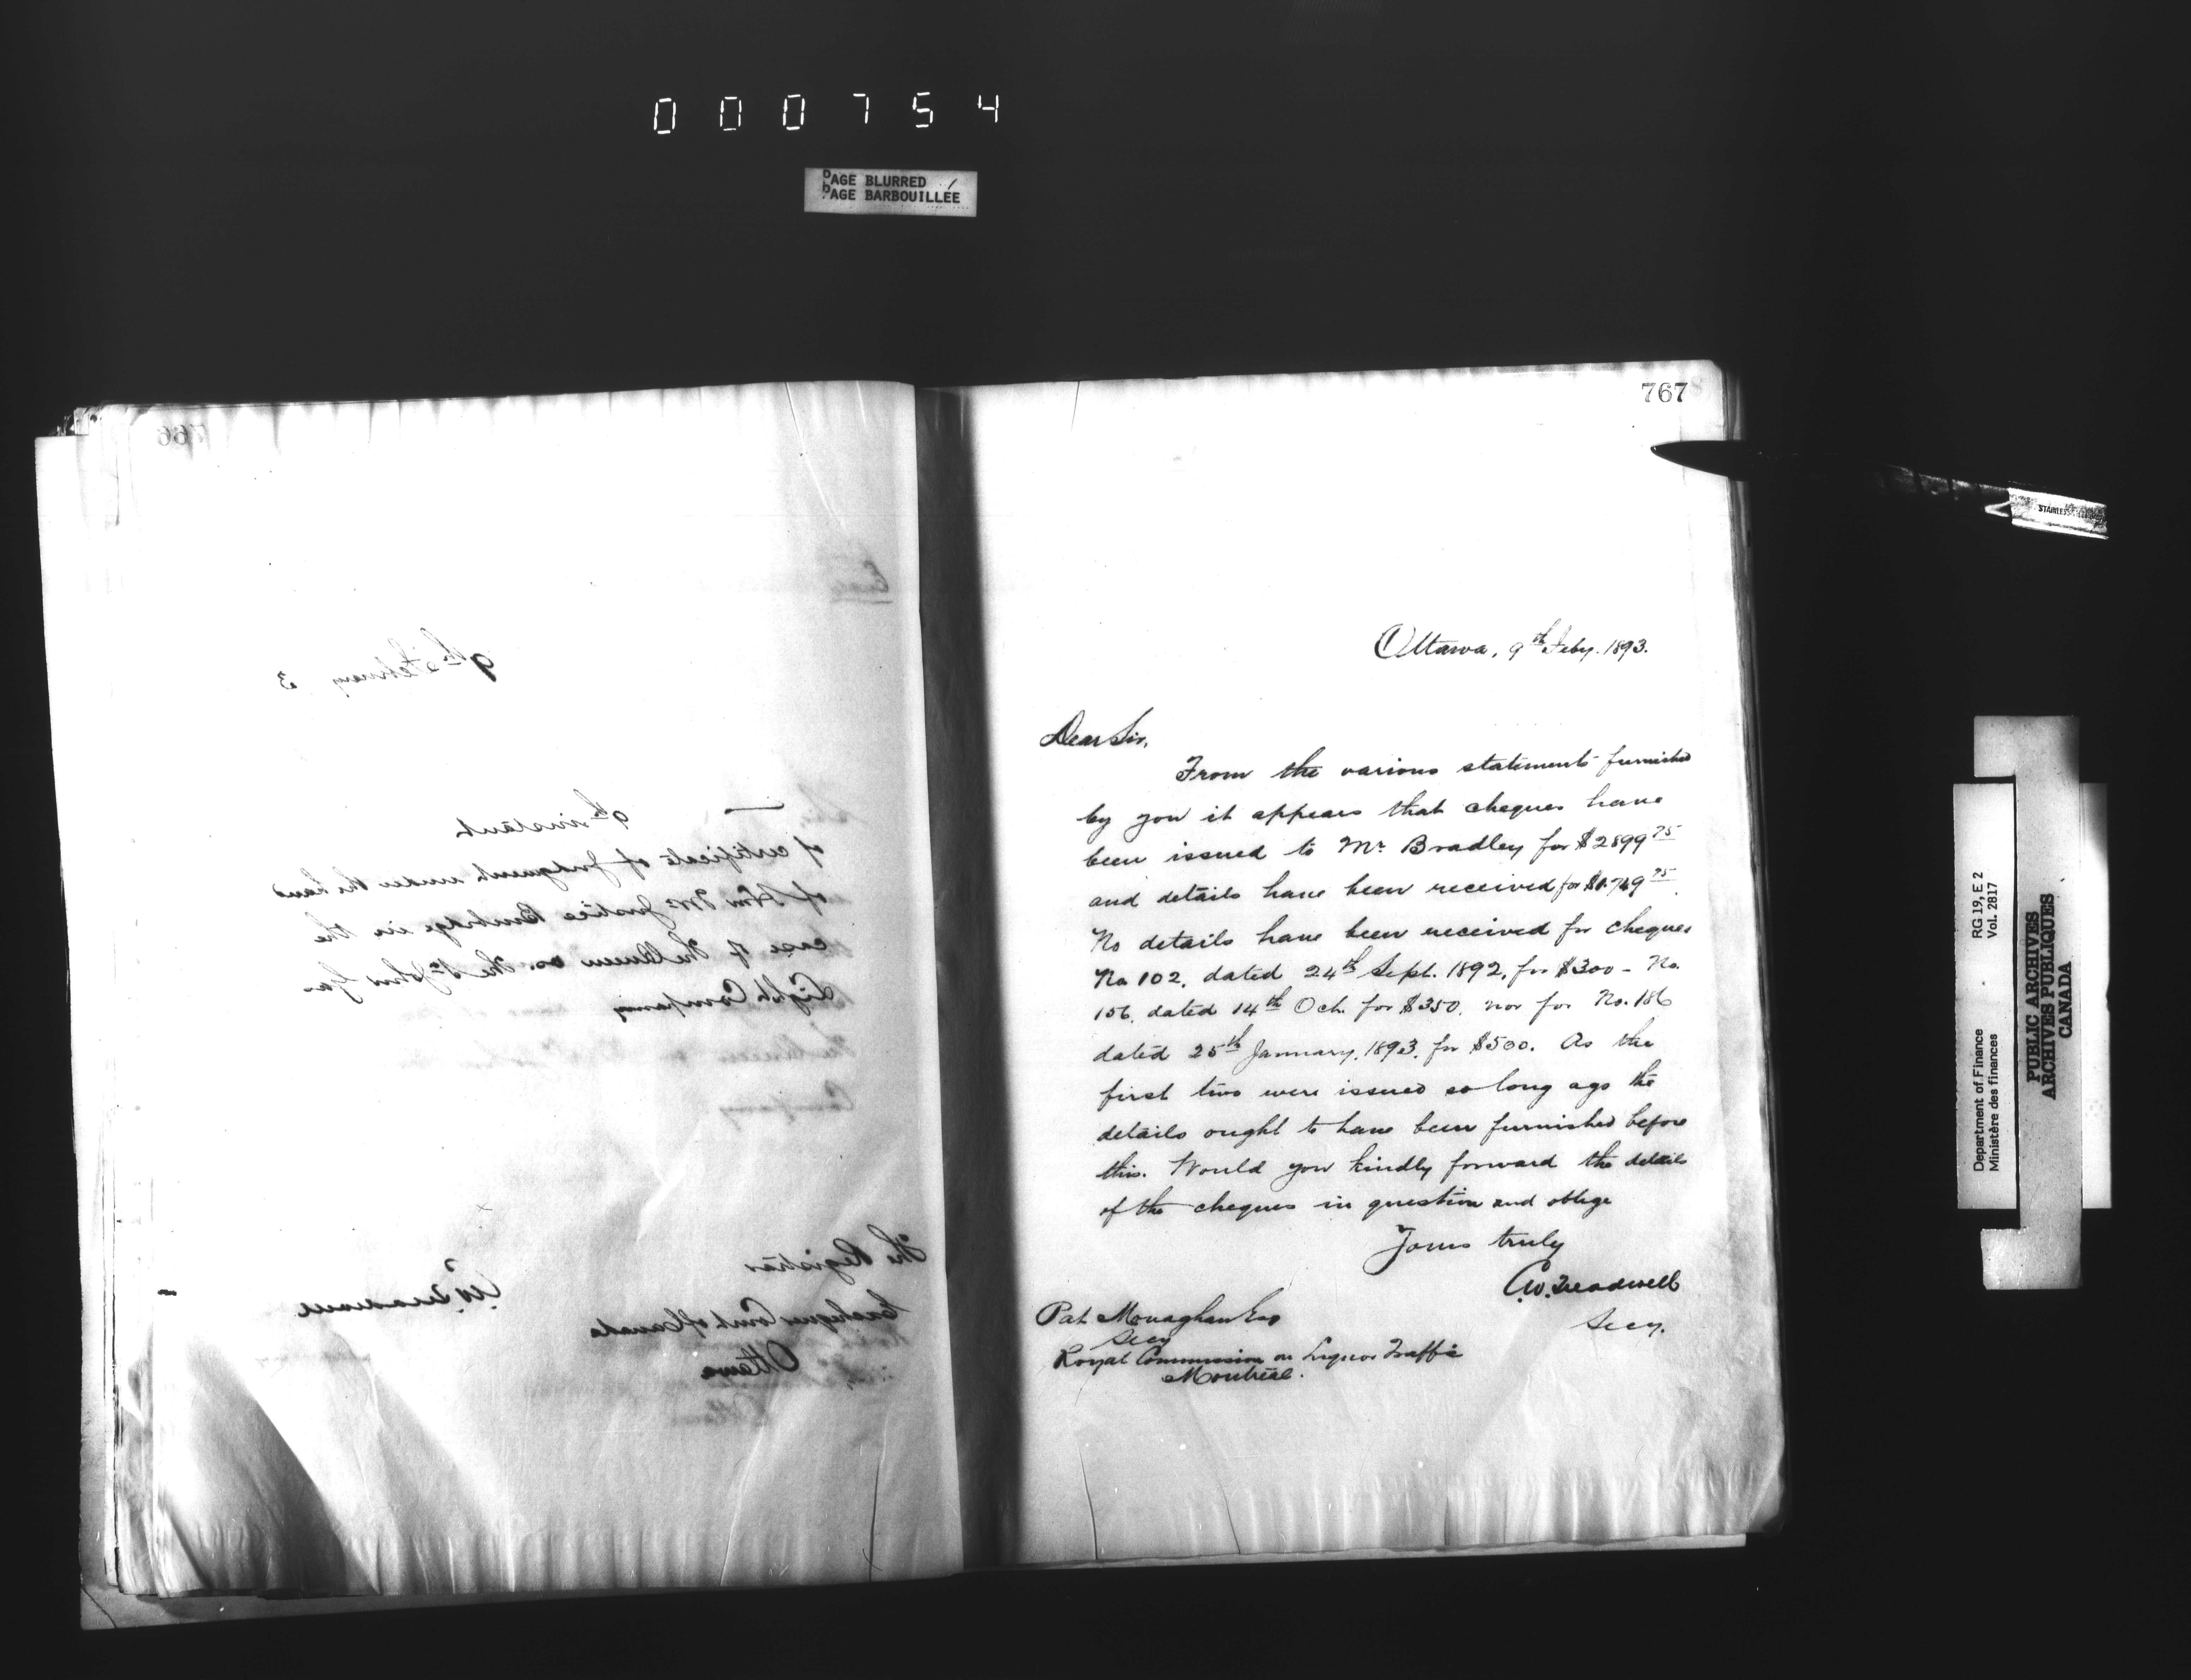 000754
PAGE BLURRED
PAGE BARBOUILLÉE
766
9th February 3
9th instant
of certificate of Judgment under the hand
of Hon Mr. Justice Burbidge in the
case of The Queen vs. The St. John Gas
Light Company
The Registrar
Exchequer Court of Canada
Ottawa
767
Ottawa, 9th Feby. 1893.
Dear Sir,
From the various statements furnished
by you it appears that cheques have
been issued to Mr. Bradley for $2899 75
and details have been received for $1.749 75.
No details have been received for cheques
No 102, dated 24th Sept. 1892, for $300 - No.
156, dated 14th Oct. for $350, nor for No. 186
dated 25th January, 1893, for $500. As the
first two were issued so long ago the
details ought to have been furnished before
this. Would you kindly forward the details
of the cheques in question and oblige
Yours truly
C.W. Treadwell
Secy.
Pat Monaghan Esq
Secy
Royal Commission on Liquor Traffic
Montreal.
STAINLESS
Department of Finance RG 19, E 2
Ministère des finances Vol. 2817
PUBLIC ARCHIVES
ARCHIVES PUBLIQUES
CANADA